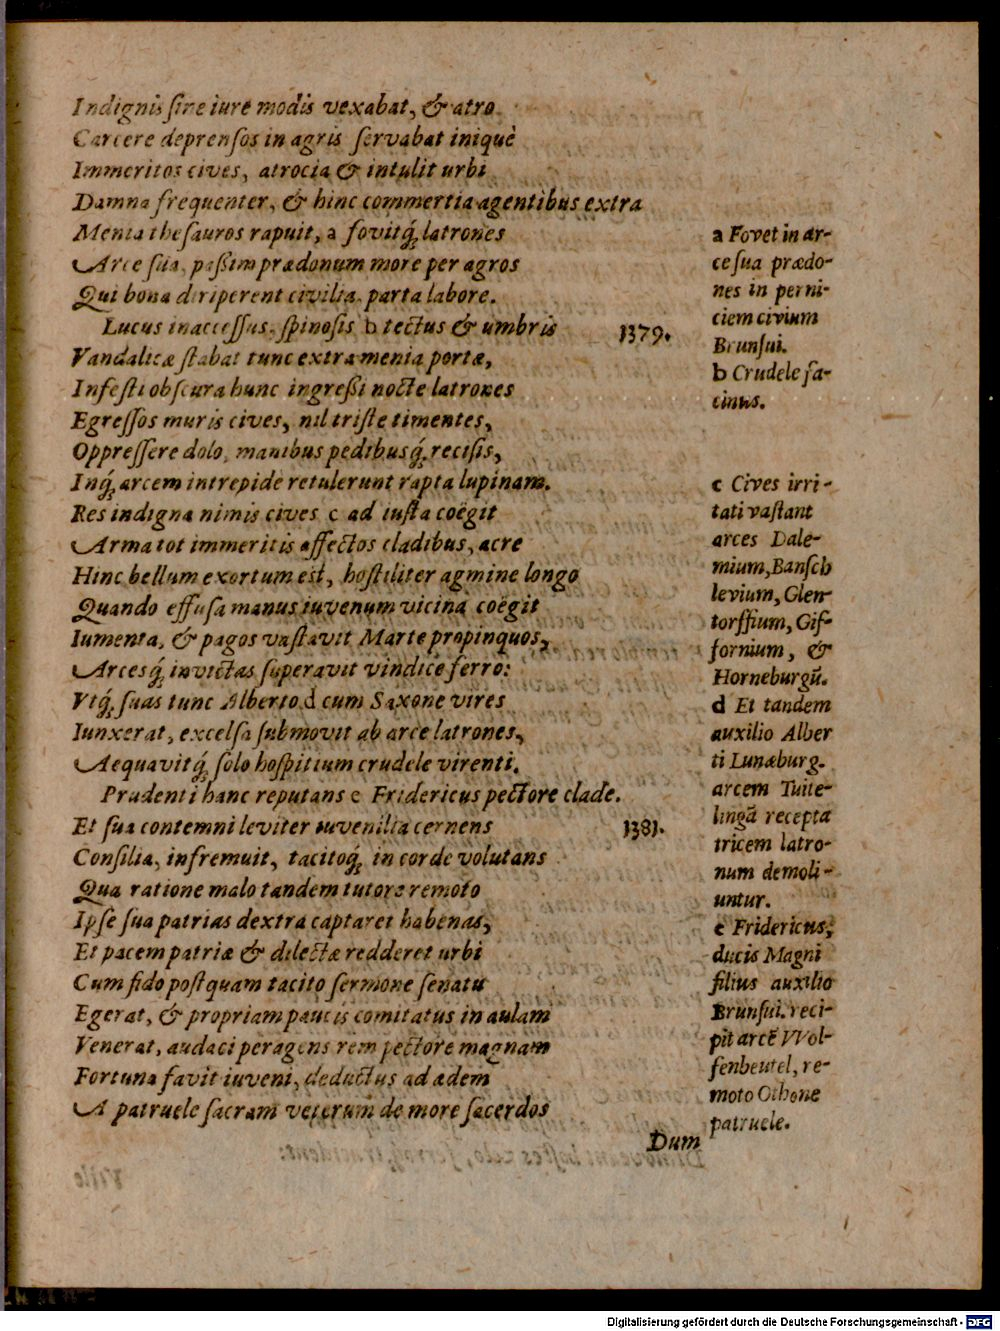 Indignis sine iure modis vexabat, & atro
Carcere deprensos in agris servabat iniquè
Immeritos cives, atrocia & intulit urbi
Damna frequenter, & hinc commertia agentibus extra
Menia thesauros rapuit, a fovitq́; latrones
Arce sua, passim prædonum more per agros
Qui bona diriperent civilia, parta labore.
Lucus inaccessus, spinosis b tectus & umbris 1379.
Vandalicæ stabat tunc extra menia portæ,
Infesti obscura hunc ingressi nocte latrones
Egressos muris cives, nil triste timentes,
Oppressere dolo, manibus pedibusq́; recisis,
Inq́; arcem intrepide retulerunt rapta lupinam.
Res indigna nimis cives c ad iusta coëgit
Arma tot immeritis affectos cladibus, acre
Hinc bellum exortum est, hostiliter agmine longo
Quando effusa manus iuvenum vicina coëgit
Iumenta, & pagos vastavit Marte propinquos,
Arcesq́; invictas superavit vindice ferro:
Vtq́; suas tunc Alberto d cum Saxone vires
Iunxerat, excelsa submovit ab arce latrones,
Aequavitq́; solo hospitium crudele virenti.
Prudenti hanc reputans e Fridericus pectore clade.
Et sua contemni leviter iuvenilia cernens 1381.
Consilia, infremuit, tacitoq́; in corde volutans
Qua ratione malo tandem tutore remoto
Ipse sua patrias dextra captaret habenas,
Et pacem patriæ & dilectæ redderet urbi
Cum fido postquam tacito sermone senatu
Egerat, & propriam paucis comitatus in aulam
Venerat, audaci peragens rem pectore magnam
Fortuna favit iuveni, deductus ad ædem
A patruele sacram veterum de more sacerdos
Dum
a Fovet in ar-
ce sua prædo-
nes in perni-
ciem civium
Brunsui.
b Crudele fa-
cinus.
c Cives irri-
tati vastant
arces Dale-
mium, Bansch
levium, Glen-
torffium, Gif-
fornium, &
Horneburgũ.
d Et tandem
auxilio Alber
ti Lunæburg.
arcem Tuite-
lingã recepta
tricem latro-
num demoli-
untur.
e Fridericus,
ducis Magni
filius auxilio
Brunsui. reci-
pit arcẽ VVol-
fenbeutel, re-
moto Othone
patruele.
Digitalisierung gefördert durch die Deutsche Forschungsgemeinschaft - DFG